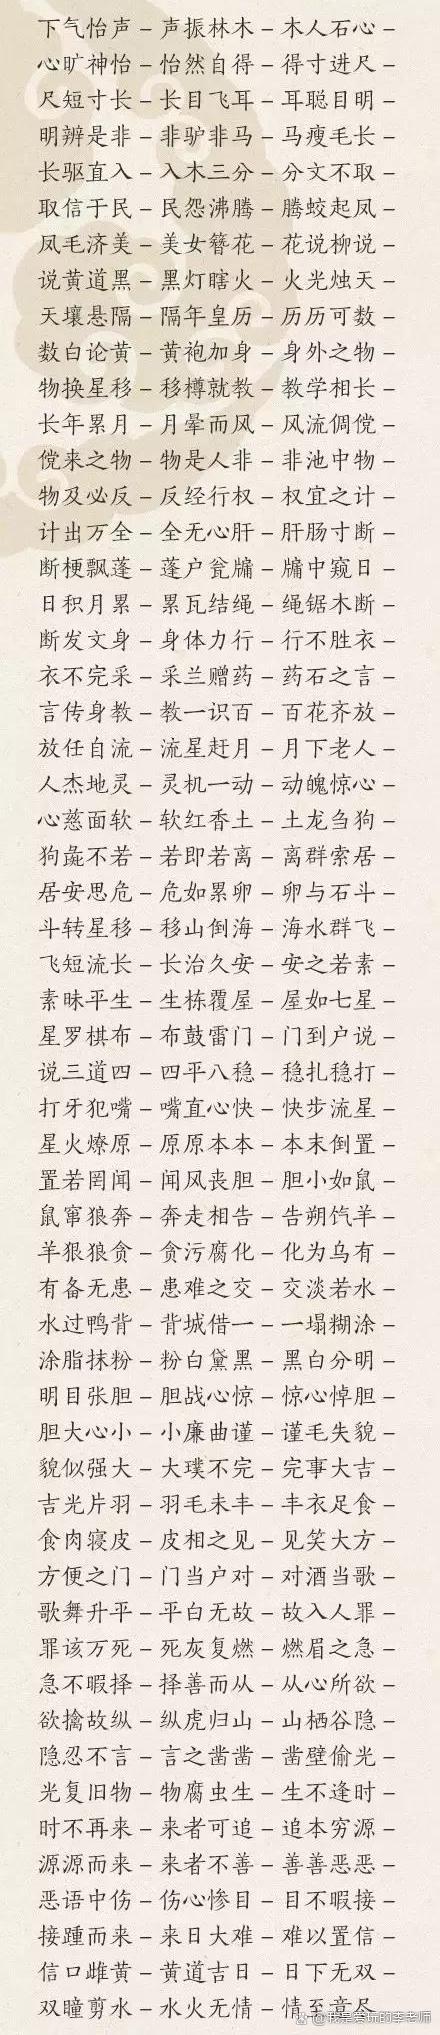 下气怡声–声振林木–木人石心–
心旷神怡–怡然自得–得寸进尺–
尺短寸长–长目飞耳–耳聪目明–
明辨是非–非驴非马–马瘦毛长–
长驱直入–入木三分–分文不取–
取信于民–民怨沸腾–腾蛟起凤–
凤毛济美–美女簪花–花说柳说–
说黄道黑–黑灯瞎火–火光烛天–
天壤悬隔–隔年皇历–历历可数–
数白论黄–黄袍加身–身外之物–
物换星移–移樽就教–教学相长–
长年累月–月晕而风–风流倜傥–
傥来之物–物是人非–非池中物–
物及必反–反经行权–权宜之计–
计出万全–全无心肝–肝肠寸断–
断梗飘蓬–蓬户瓮牖–牖中窥日–
日积月累–累瓦结绳–绳锯木断–
断发文身–身体力行–行不胜衣–
衣不完采–采兰赠药–药石之言–
言传身教–教一识百–百花齐放–
放任自流–流星赶月–月下老人–
人杰地灵–灵机一动–动魄惊心–
心慈面软–软红香土–土龙刍狗–
狗彘不若–若即若离–离群索居–
居安思危–危如累卵–卵与石斗–
斗转星移–移山倒海–海水群飞–
飞短流长–长治久安–安之若素–
素昧平生–生栋覆屋–屋如七星–
星罗棋布–布鼓雷门–门到户说–
说三道四–四平八稳–稳扎稳打–
打牙犯嘴–嘴直心快–快步流星–
星火燎原–原原本本–本末倒置–
置若罔闻–闻风丧胆–胆小如鼠–
鼠窜狼奔–奔走相告–告朔饩羊–
羊狠狼贪–贪污腐化–化为乌有–
有备无患–患难之交–交淡若水–
水过鸭背–背城借一–一塌糊涂–
涂脂抹粉–粉白黛黑–黑白分明–
明目张胆–胆战心惊–惊心悼胆–
胆大心小–小廉曲谨–谨毛失貌–
貌似强大–大璞不完–完事大吉–
吉光片羽–羽毛未丰–丰衣足食–
食肉寝皮–皮相之见–见笑大方–
方便之门–门当户对–对酒当歌–
歌舞升平–平白无故–故入人罪–
罪该万死–死灰复燃–燃眉之急–
急不暇择–择善而从–从心所欲–
欲擒故纵–纵虎归山–山栖谷隐–
隐忍不言–言之凿凿–凿壁偷光–
光复旧物–物腐虫生–生不逢时–
时不再来–来者可追–追本穷源–
源源而来–来者不善–善善恶恶–
恶语中伤–伤心惨目–目不暇接–
接踵而来–来日大难–难以置信–
信口雌黄–黄道吉日–日下无双–
双瞳剪水–水火无情–情至意尽–
@我是爱玩的李老师